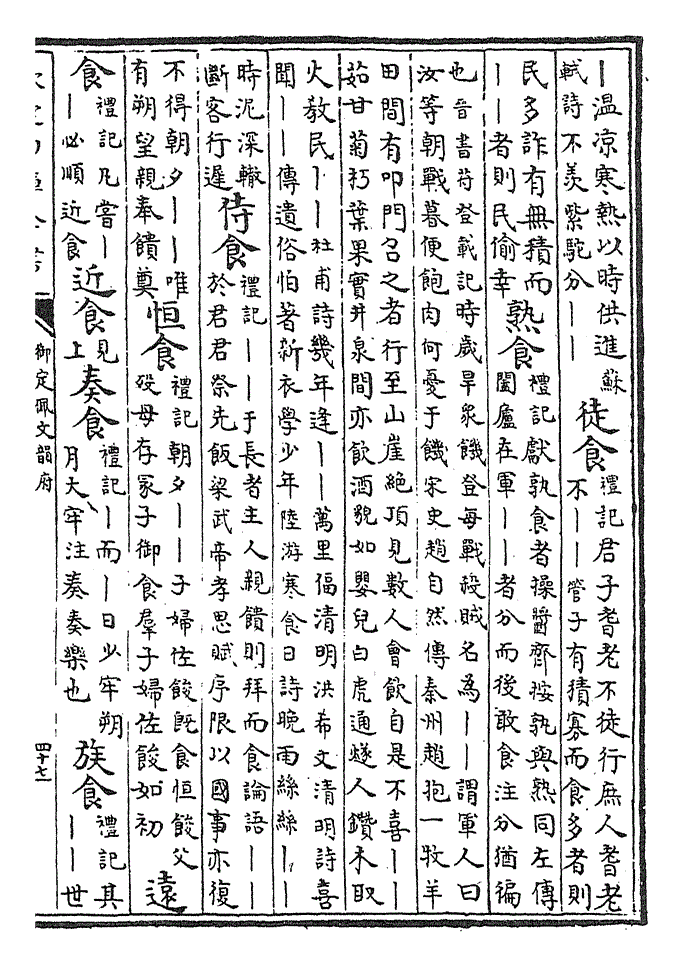 ｜溫涼寒熱以時供進蘇
軾詩不羨紫駝分｜｜
徒食
禮記君子耆老不徒行庶人耆老
不｜｜管子有積寡而食多者則
民多詐有無積而
｜｜者則民偷幸
熟食
禮記獻孰食者操醬齊按孰與熟同左傳
闔廬在軍｜｜者分而後敢食注分猶徧
也晉書苻登載記時歲旱衆饑登每戰殺賊名為｜｜謂軍人曰
汝等朝戰暮便飽肉何憂于饑宋史趙自然傳秦州趙抱一牧羊
田間有叩門召之者行至山崖絶頂見數人會飲自是不喜｜｜
茹甘菊朽葉果實井泉間亦飲酒貌如嬰兒白虎通燧人鑽木取
火敎民｜｜杜甫詩幾年逢｜｜萬里偪清明洪希文清明詩喜
聞｜｜傳遺俗怕著新衣學少年陸游寒食日詩晚雨絲絲｜｜
時泥深轍
斷客行遲
侍食
禮記｜｜于長者主人親饋則拜而食論語｜｜
於君君祭先飯梁武帝孝思賦序限以國事亦復
不得朝夕｜｜唯
有朔望親奉饋奠
恒食
禮記朝夕｜｜子婦佐餕旣食恒餕父
歿母存冢子御食羣子婦佐餕如初
遠
食
禮記凡嘗｜
｜必順近食
近食
見
上
奏食
禮記｜而｜日少牢朔
月大牢注奏奏樂也
族食
禮記其
｜｜世
御定佩文韻府
四十七